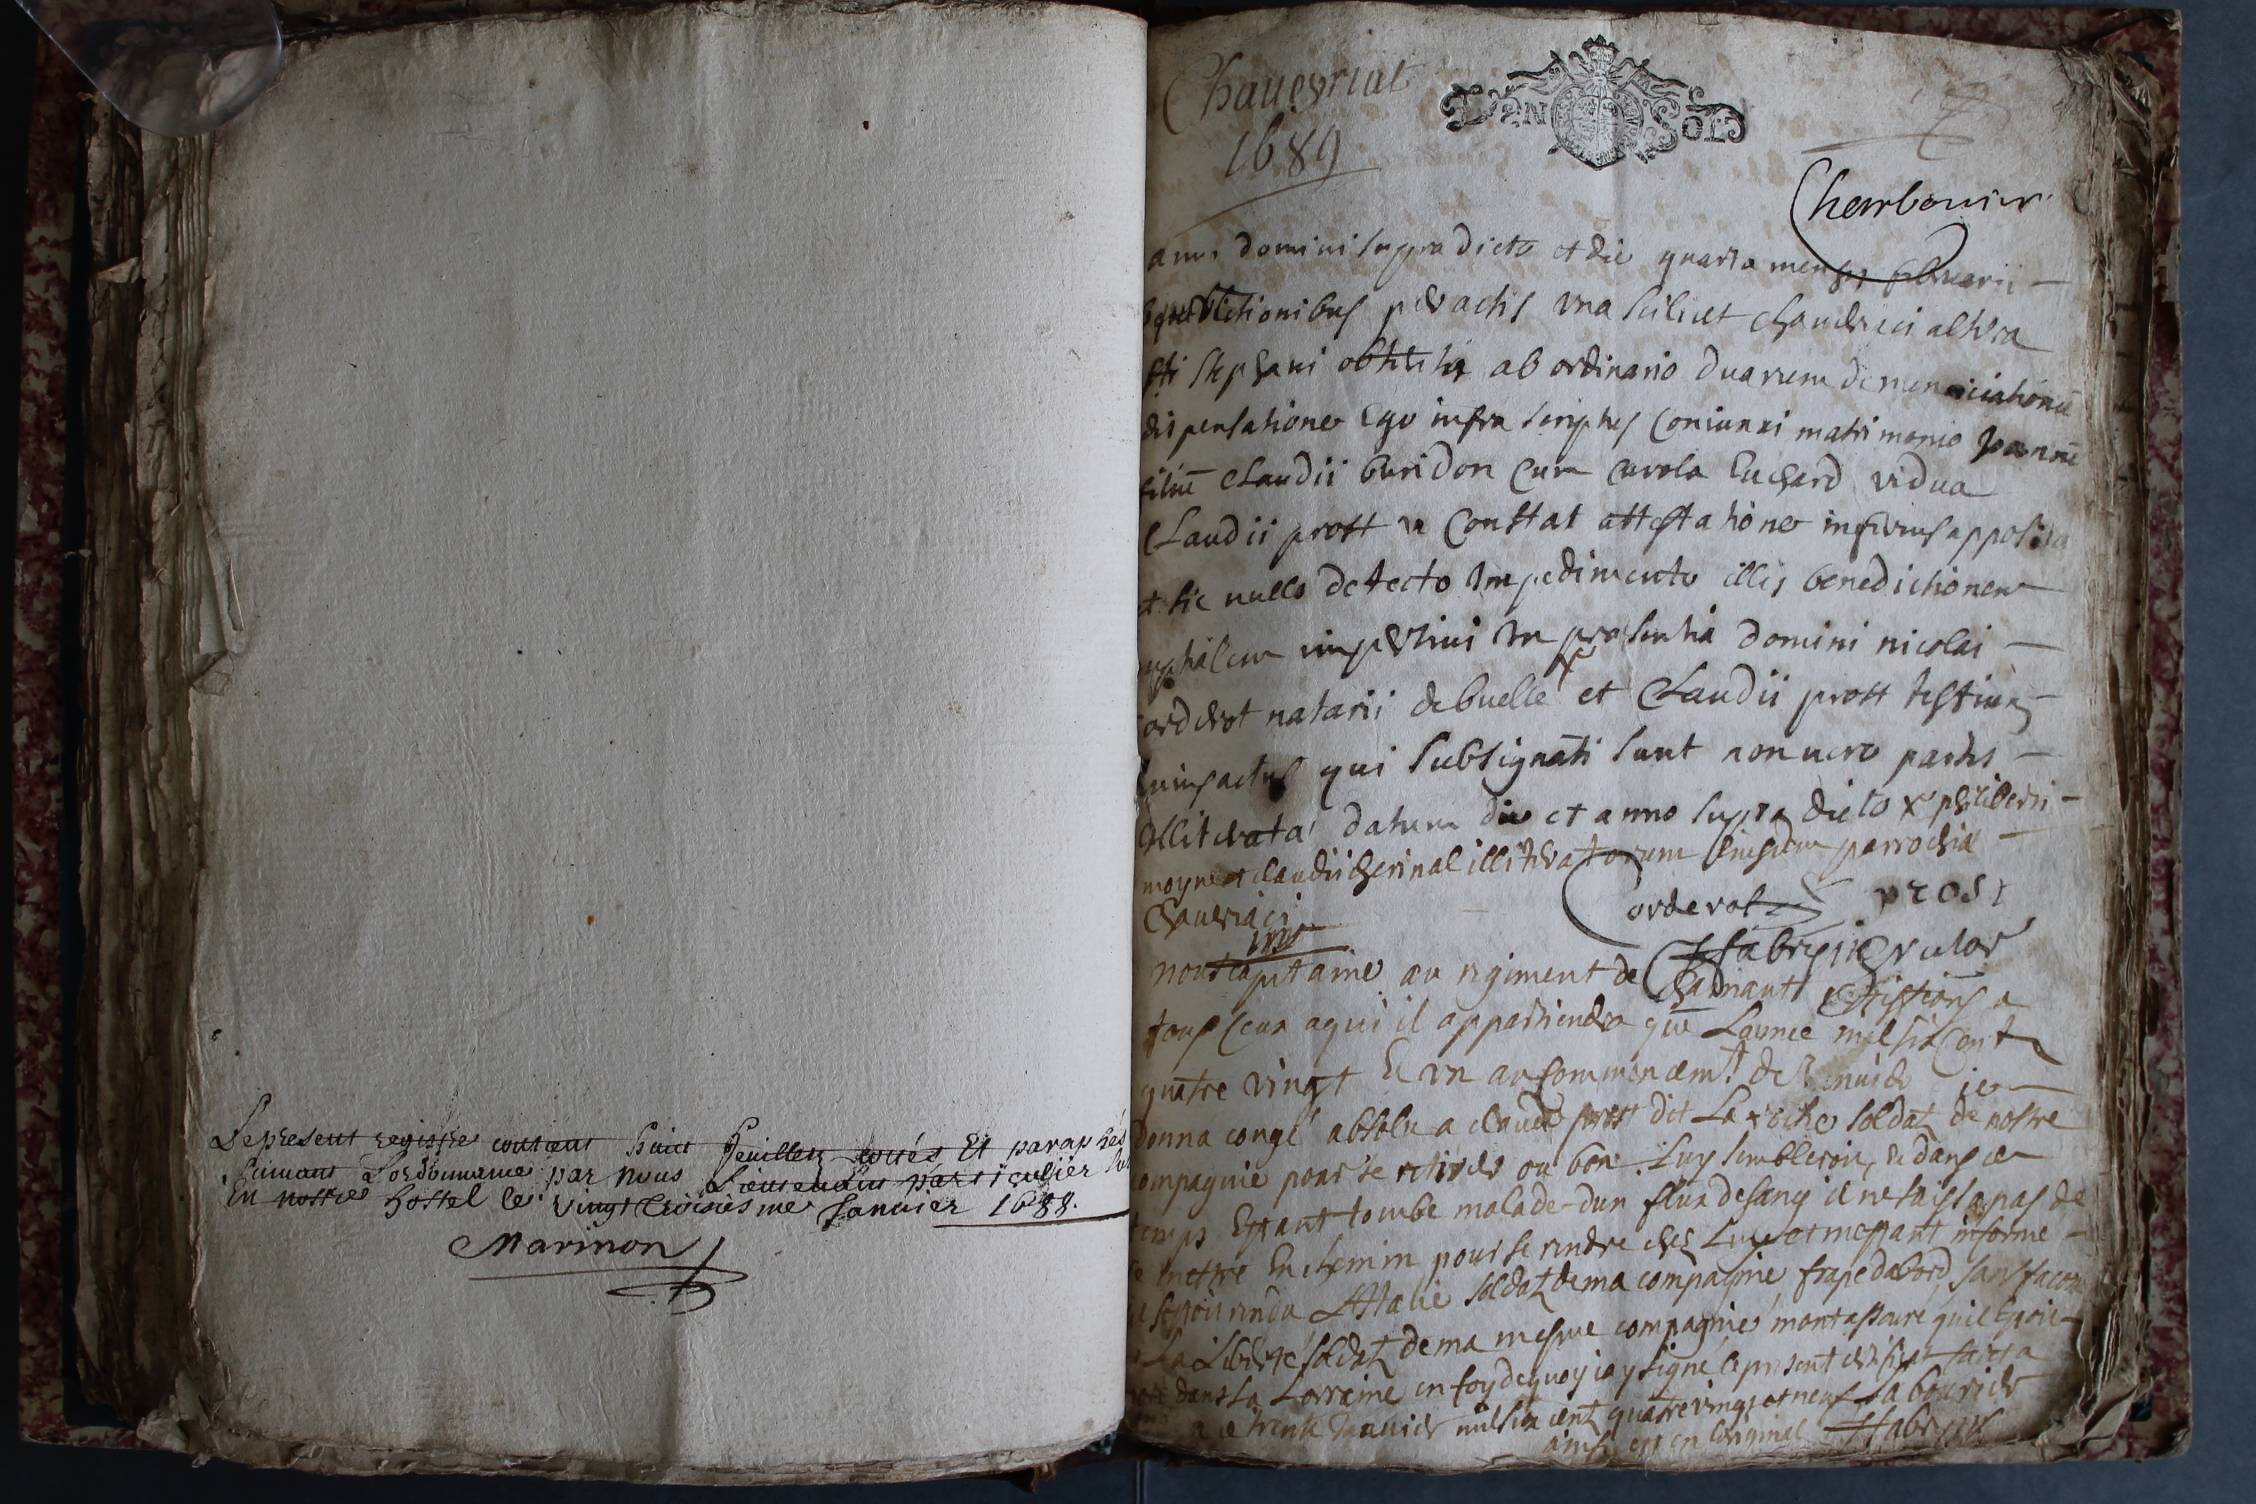 Le present registre contient huict feuillets cottés Et paraphés
suivant Lordonnance par nous Lieutenant particulier
En nostre hostel le vingt troisiesme Janvier 1688.
Marinon
Chaueyriat
1689
UN SOL
Charbonier
anno domini supra dicto et die quarta mensis februarii
peractis una scilicet chaueriaci altera
sti stephani obtenta ab ordinario duarum denunciationū
dispensatione Ego infra scriptus coniunxi matrimonio Joannē
filiū Claudii buridon cum carola Euchard vidua
Claudii prost ut constat attestatione inferius apposita
et sic nullo detecto impedimento illis benedictionem
nuptialem impertivi in præsentia domini nicolai
Corderot notarii de buelle x et Claudii prost testium
qui subsignati sunt non uero partes
illiterata datum die et anno supra dicto x philiberti
moyne et claudii cherinal illiteratorum eiusdem parrochiæ
chaueriaci
Corderot prost
nous capitaine au regiment de certiffions a
tous ceux a qui il appartiendra que Lannee mil six cent
quatre vingt & un au commencemt. de Januier ie
donna congé absolu a claude prost dit La roche soldat de nostre
compagnie pour se retirer ou bon luy sembleroit, & dans ce
temps Estant tombe malade dun flux de sang il ne laissa pas de
se mettre En chemin pour se rendre chez Luy et mestant informé
rendu soldat de ma compagnie frape dabord sans facon
La Liberté soldat de ma mesme compagnie mont assuré quil Estoit
dans La Lorraine en foy de quoy iay signé le present certificat faict a
ce trente Januier mil six cent quatre vingt et neuf La bouriere
ainsy est en loriginal Fabry